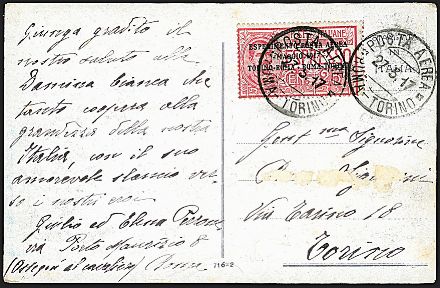 Giunga gradito il
nostro saluto alla
Damina bianca che
tanto coopera alla
grandezza della nostra
Italia, con il suo
amorevole slancio ver-
so i nostri eroi
Giulio ed Elena
via Porto Maurizio 8
Roma
716-2
ITALIANE
ESPERIMENTO POSTA AEREA
MAGGIO 1917
TORINO-ROMA · ROMA-TORINO
POSTA AEREA
TORINO
POSTA AEREA
TORINO
Gent ma Signorina
Via Torino 18
Torino